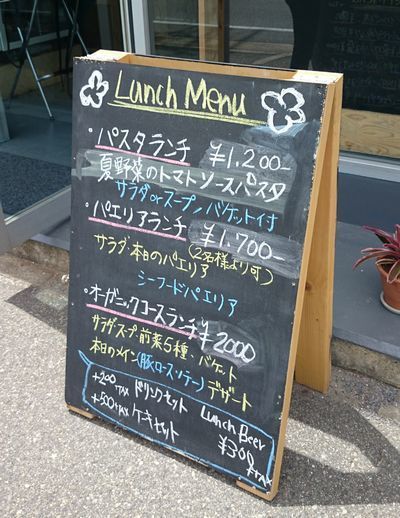 Lunch Menu
・パスタランチ ¥1,200-
夏野菜のトマトソースパスタ
サラダorスープ/バゲット付
・パエリアランチ ¥1,700-
(2名様より可)
サラダ・本日のパエリア
シーフードパエリア
・オーガニックコースランチ ¥2000
サラダ・スープ・前菜5種、バケット
本日のメイン(豚ロースソテー)デザート
+200+TAX ドリンクセット
+500+TAX ケーキセット
Lunch Beer
¥300
+TAX